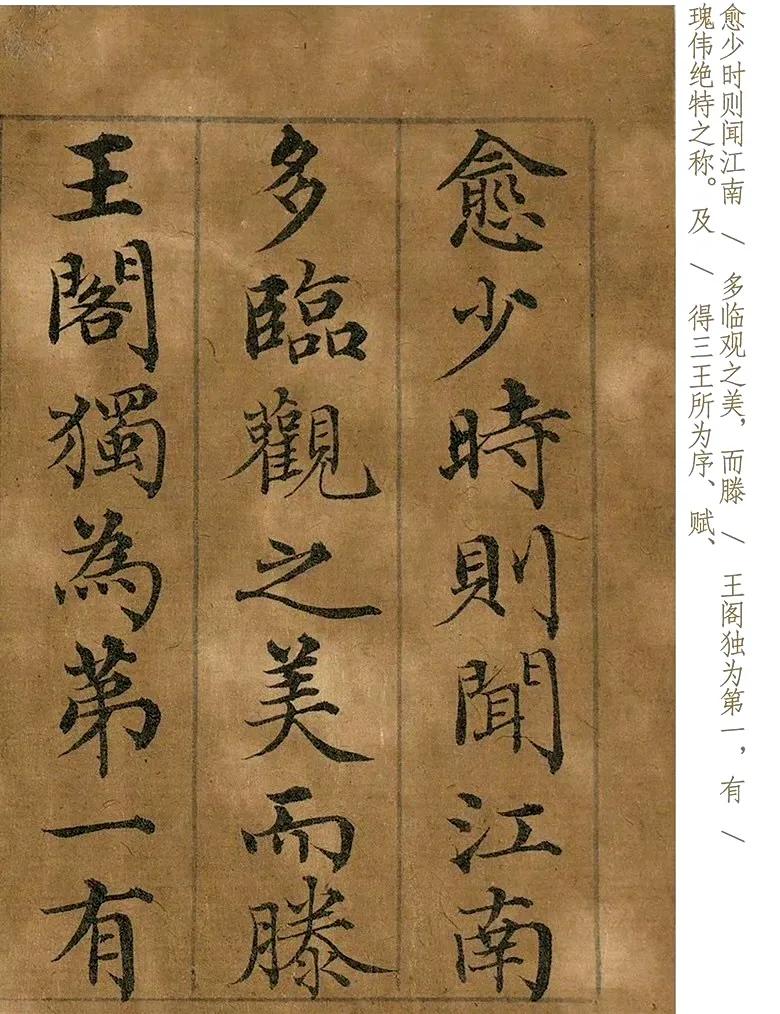 愈少时则闻江南 \ 多临观之美，而滕 \ 王阁独为第一，有 \
瑰伟绝特之称。及 \ 得三王所为序、赋、
愈少時則聞江南
多臨觀之美而滕
王閣獨為第一有